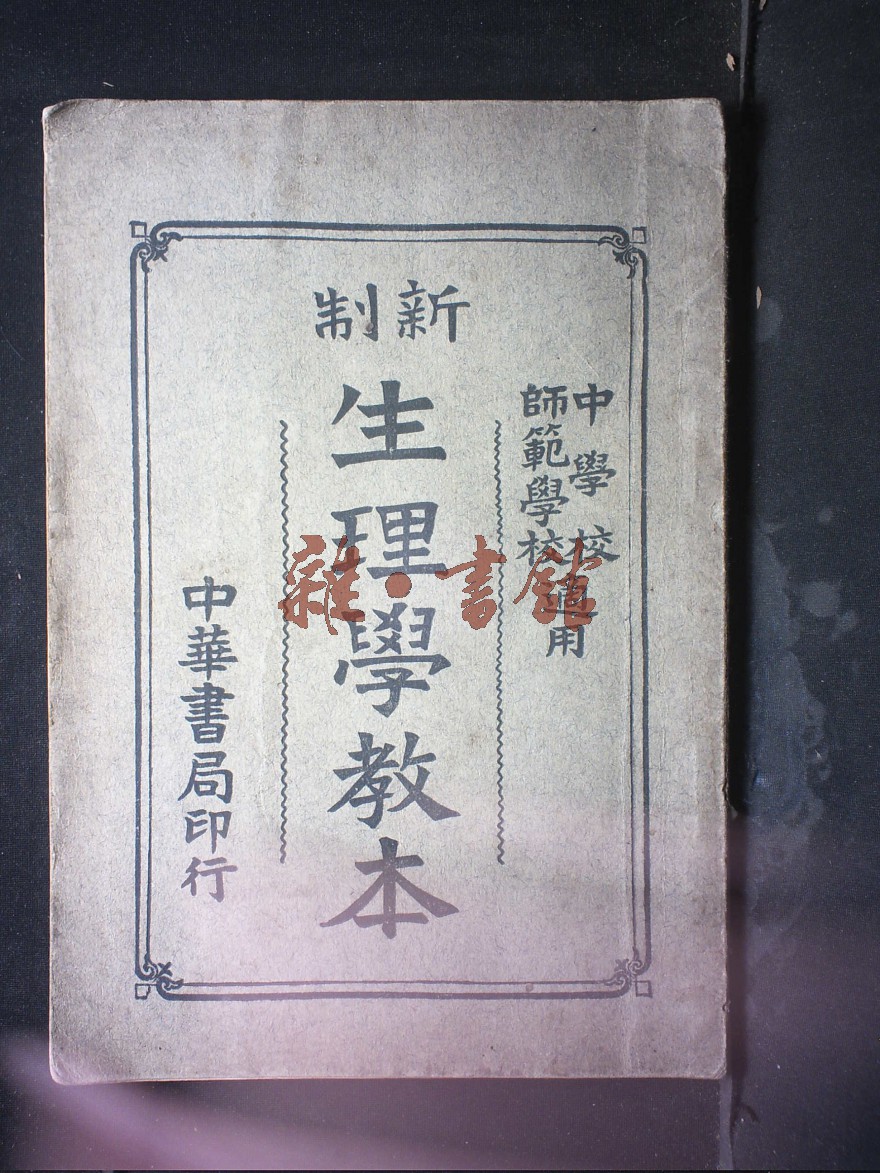 中學校
師範學校
適用
新制
生理學教本
中華書局印行
雜·書館